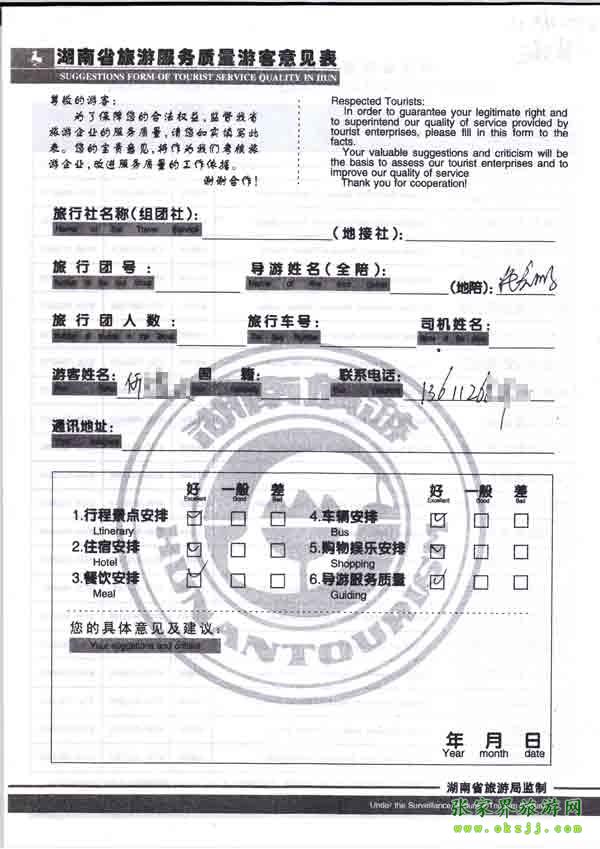 湖南省旅游服务质量游客意见表
SUGGESTIONS FORM OF TOURIST SERVICE QUALITY IN HUN
尊敬的游客：
为了保障您的合法权益，监督我省
旅游企业的服务质量，请您如实填写此
表。您的宝贵意见，将作为我们考核旅
游企业，改进服务质量的工作依据。
谢谢合作！
Respected Tourists:
In order to guarantee your legitimate right and
to superintend our quality of service provided by
tourist enterprises, please fill in this form to the
facts.
Your valuable suggestions and criticism will be
the basis to assess our tourist enterprises and to
improve our quality of service
Thank you for cooperation!
旅行社名称(组团社)：
Name of the Travel Service
(地接社)：
旅行团号：
导游姓名(全陪)：
(地陪)：
旅行团人数：
旅行车号：
司机姓名：
游客姓名：
国籍：
联系电话： 1361126
通讯地址：
好 一般 差 好 一般 差
Excellent Good Bad Excellent Good Bad
1.行程景点安排 4.车辆安排
Ltinerary Bus
2.住宿安排 5.购物娱乐安排
Hotel Shopping
3.餐饮安排 6.导游服务质量
Meal Guiding
您的具体意见及建议：
Your suggestions and criticism
湖南旅游
HUNANTOURISM
年 月 日
Year month date
湖南省旅游局监制
Under the Surveillance
张家界旅游网
www.okzjj.com